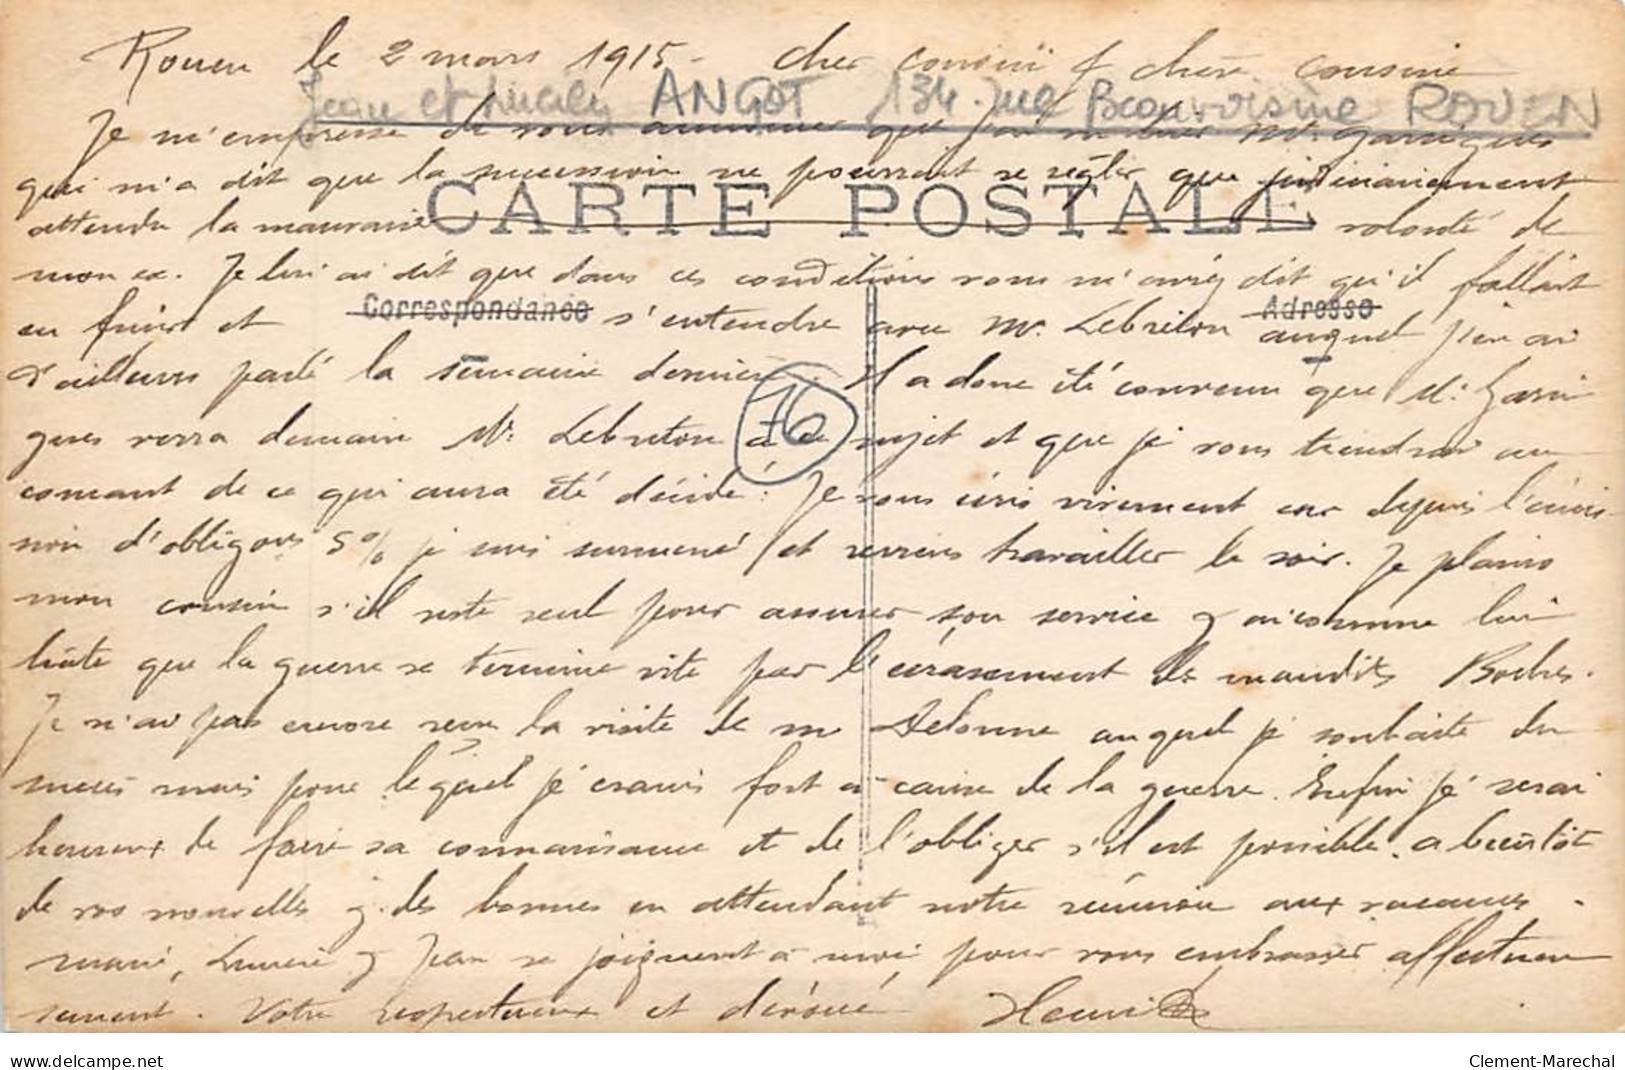 Rouen le 2 mars 1915 - cher cousin & chère cousine
Jean et Lucien ANGOT 134 rue Beauvoisine ROUEN
Je m'empresse de vous annoncer que j'ai vu hier Mr. Garrigues
qui m'a dit que la succession ne pourrait se régler que judiciairement
CARTE POSTALE
attendu la mauvaise volonté de
mon ex. Je lui ai dit que dans ces conditions vous m'aviez dit qu'il fallait
Correspondance Adresse
en finir et s'entendre avec Mr. Lebreton auquel j'en ai
d'ailleurs parlé la semaine dernière. Il a donc été convenu que Mr. Garri
76
gues verra demain Mr. Lebreton à ce sujet et que je vous tiendrai au
courant de ce qui aura été décidé. Je vous écris vivement car depuis l'émis-
sion d'obligons 5% je suis surmené et reviens travailler le soir. Je plains
mon cousin s'il reste seul pour assurer son service & ai comme lui
hâte que la guerre se termine vite par l'écrasement des maudits Boches.
Je n'ai pas encore reçu la visite de mr Delonne auquel je souhaite du
succès mais pour lequel je crains fort à cause de la guerre. Enfin je serai
heureux de faire sa connaissance et de l'obliger s'il est possible. a bientôt
de vos nouvelles & des bonnes en attendant notre réunion aux vacances.
Marie, Lucien & Jean se joignent à moi pour vous embrasser affectueu
sement. Votre respectueux et dévoué Henri
delcampe.net Clement-Marechal